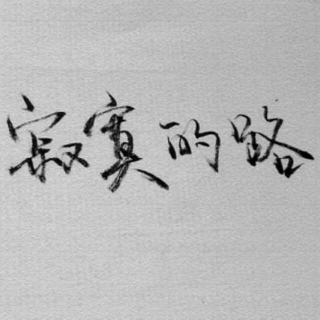 寂寞的路